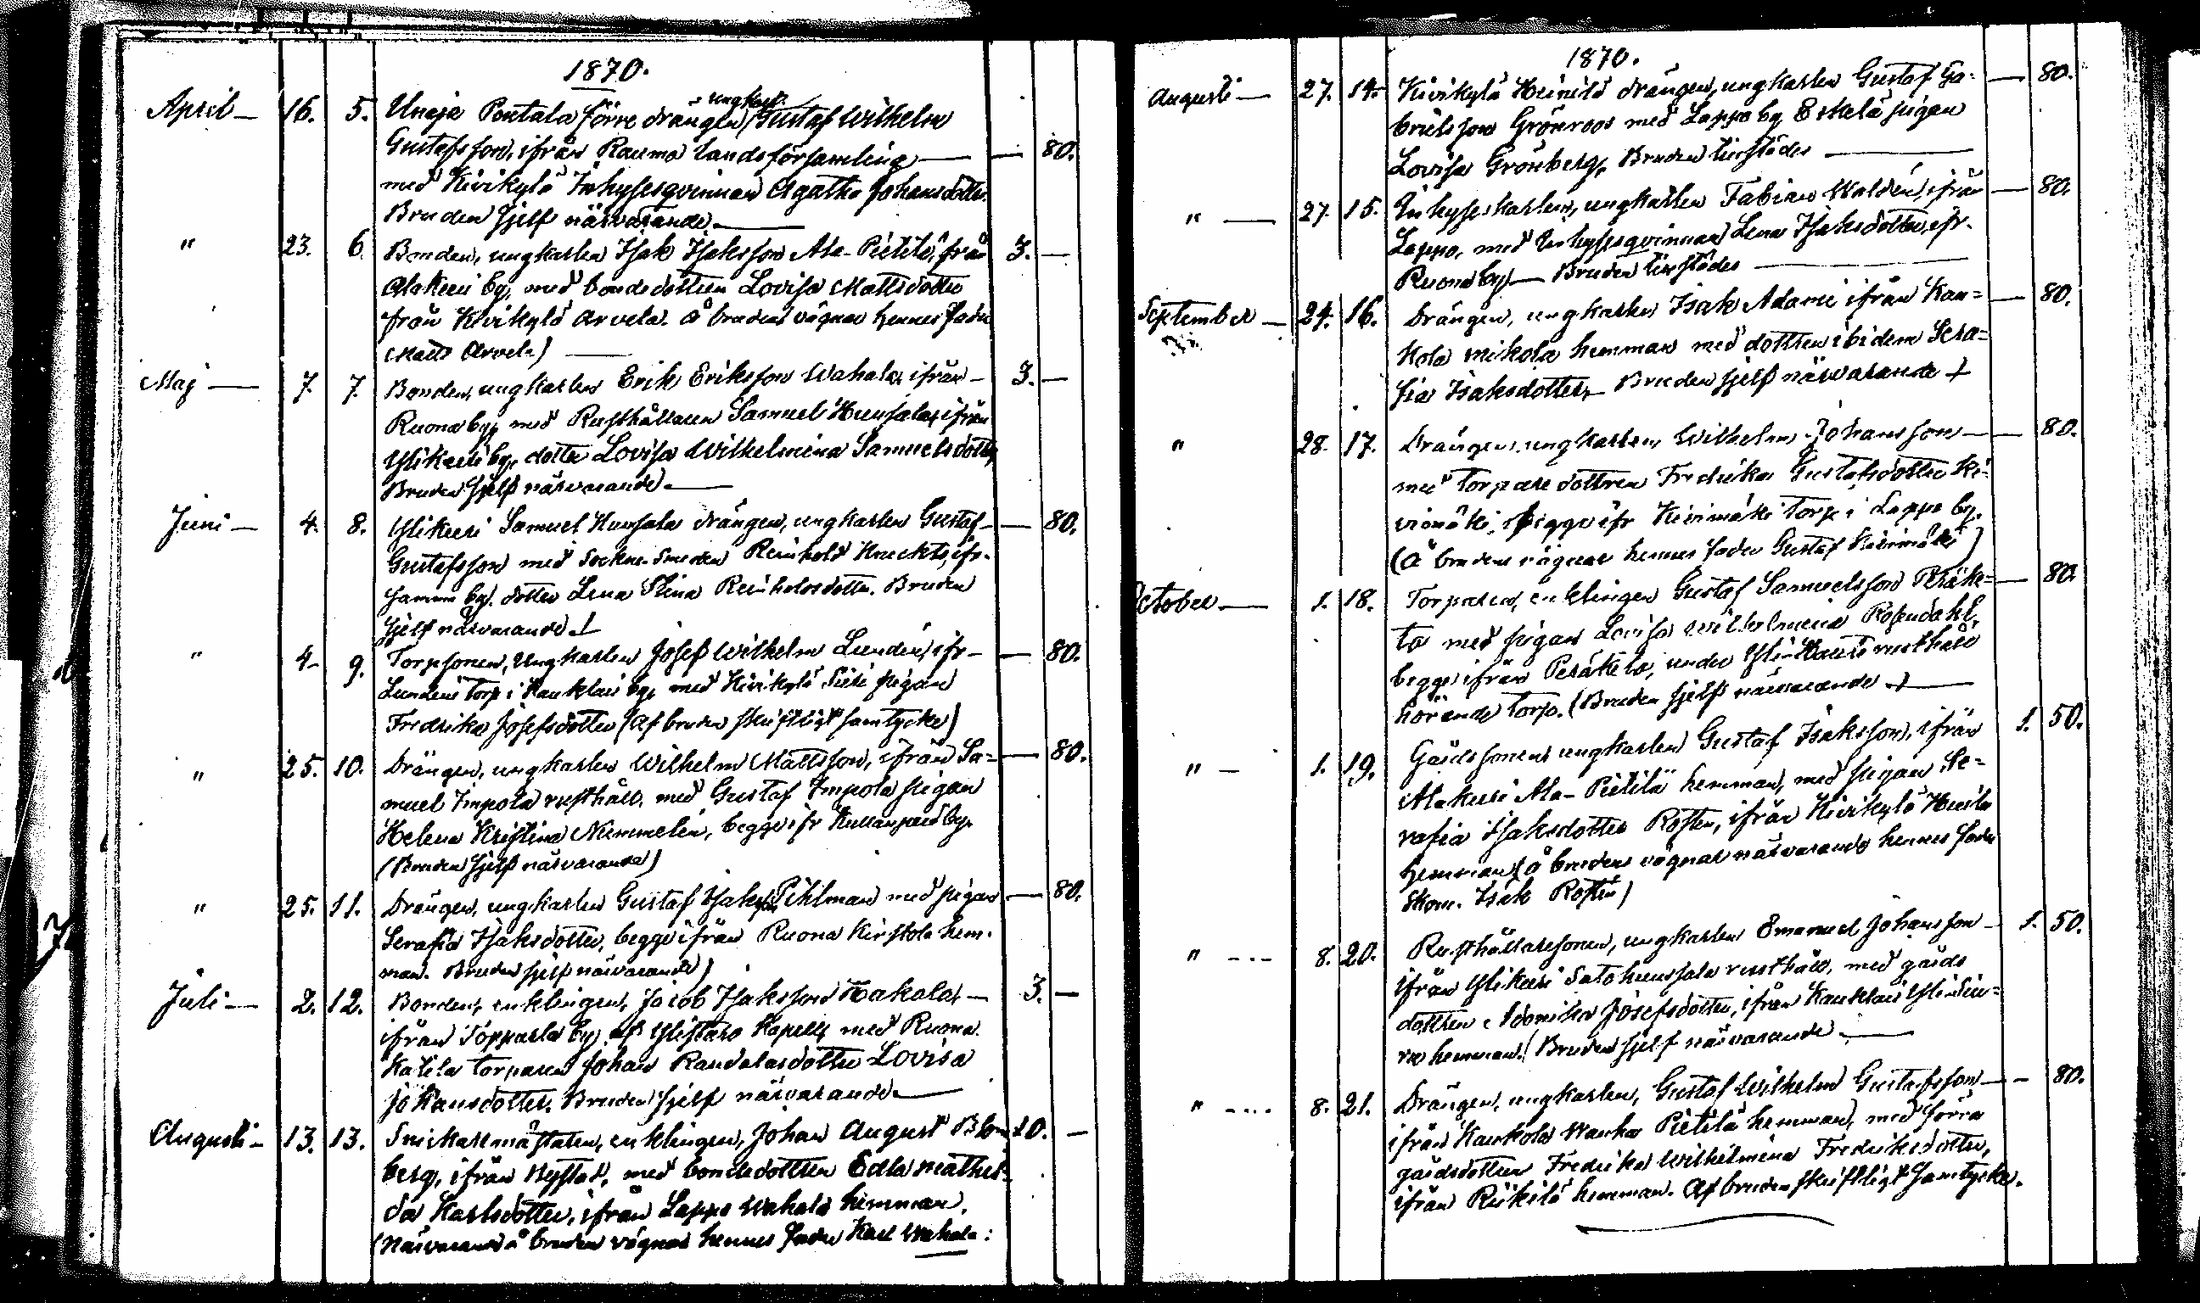 1870.
April — 16. 5. Unaja Pentala förre drängen, ungkarl. Gustaf Wilhelm
Gustafsson, ifrån Raumo landsförsamling — — 80.
med Kivikylä Inhysesqvinnan Agatha Johansdotter.
Bruden sjelf närvarande. —
" 23. 6. Bonden, ungkarlen Isak Isaksson Ala-Pietilä, från 3. —
Alakieri by, med bondedottren Lovisa Mattsdotter
från Kivikylä Arvela. Å brudens vägnar hennes fader
(Matts Arvela) —
Maj — 7. 7. Bonden, ungkarlen Erik Eriksson Wahala, ifrån — 3. —
Ruona by, med Rusthållaren Samuel Hunsala, ifrån
Ylikieri by, dotter Lovisa Wilhelmina Samuelsdotter,
Bruden sjelf närvarande. —
Juni — 4. 8. Ylikieri Samuel Hunsala drängen, ungkarlen Gustaf — — 80.
Gustafsson med Sockne-Smeden Reinhold Knecktz, ifr.
samma by, dotter Lena Stina Reinholdsdotter. Bruden
sjelf närvarande.
" 4. 9. Torpsonen, Ungkarlen Josef Wilhelm Lundén, ifr — — 80.
Lundens torp i Kauklais by, med Kivikylä Piiri pigan
Fredrika Josefsdotter (Af bruden skriftligt samtycke)
" 25. 10. Drängen, ungkarlen Wilhelm Mattsson, ifrån Sa= — 80.
muel Impola rusthåll, med Gustaf Impola pigan
Helena Kristina Nummelin, begge ifr Kullanperä by.
(Bruden sjelf närvarande)
" 25. 11. Drängen, ungkarlen Gustaf Isaksson Pihlman med pigan — 80.
Serafia Isaksdotter, begge ifrån Ruona Kirstola hem-
man. Bruden sjelf närvarande)
Juli — 2. 12. Bonden, enklingen, Jacob Isaksson Hakala, — 3. —
ifrån Töpparla by af Ylistaro Kapell, med Ruona
Katila torparen Johan Randalas dotter Lovisa
Johansdotter. Bruden sjelf närvarande. —
Augusti — 13. 13. Snickaremästaren, enklingen, Johan August Blom 10. —
berg, ifrån Nystad, med bondedottren Edla Mathil-
da Karlsdotter, ifrån Lappo Wahala hemman.
(Närvarande å brudens vägnar hennes fader Karl Wahala:
1870.
Augusti — 27. 14. Kivikylä Heinilä drängen, ungkarlen Gustaf Ga- — 80.
brielsson Grönroos med Lappo by Eskelä pigan
Lovisa Grönberg, Bruden tillstädes —
" — 27. 15. Inhyseskarlen, ungkarlen Fabian Waldén, ifrån — 80.
Lappo, med Inhysesqvinnan Lena Isaksdotter, ifr.
Ruona by — Bruden tillstädes —
September — 24. 16. Drängen, ungkarlen Isak Adami ifrån Kau= — 80.
kola Mikola hemman med dottren ibidem Sera=
fia Isaksdotter, Bruden sjelf närvarande
" 28. 17. Drängen, ungkarlen, Wilhelm Johansson — — 80.
med torpare dottren Fredrika Gustafsdotter Ki-
vimäki, begge ifr Kivimäki torp i Lappo by.
(Å brudens vägnar hennes fader Gustaf Kivimäki)
October — 1. 18. Torparen, enklingen Gustaf Samuelsson Peräke= — 80.
to med pigan Lovisa Wilhelmina Rosendahl,
begge ifrån Peräketo, under Yli-Hauta rusthåll
hörande torp. (Bruden sjelf närvarande —
" — 1. 19. Gårdssonen, ungkarlen Gustaf Isaksson, ifrån 1. 50.
Alakieri Ala-Pietilä hemman, med pigan Se-
rafia Isaksdotter Rostén, ifrån Kivikylä
hemman (å brudens vägnar närvarande hennes fader
Skom. Isak Rostén)
" — 8. 20. Rusthållaresonen, ungkarlen Emanuel Johansson — 1. 50.
ifrån Ylikieri Satohunsala rusthåll, med gårds
dottren Adamika Josefsdotter, ifrån Kauklais
hemman. (Bruden sjelf närvarande —
" — 8. 21. Drängen, ungkarlen, Gustaf Wilhelm Gustafsson — — 80.
ifrån Kaukola Wanha Pietilä hemman, med förra
gårdsdottren Fredrika Wilhelmina Fredriksdotter,
ifrån Riikilä hemman. Af bruden skriftligt samtycke.